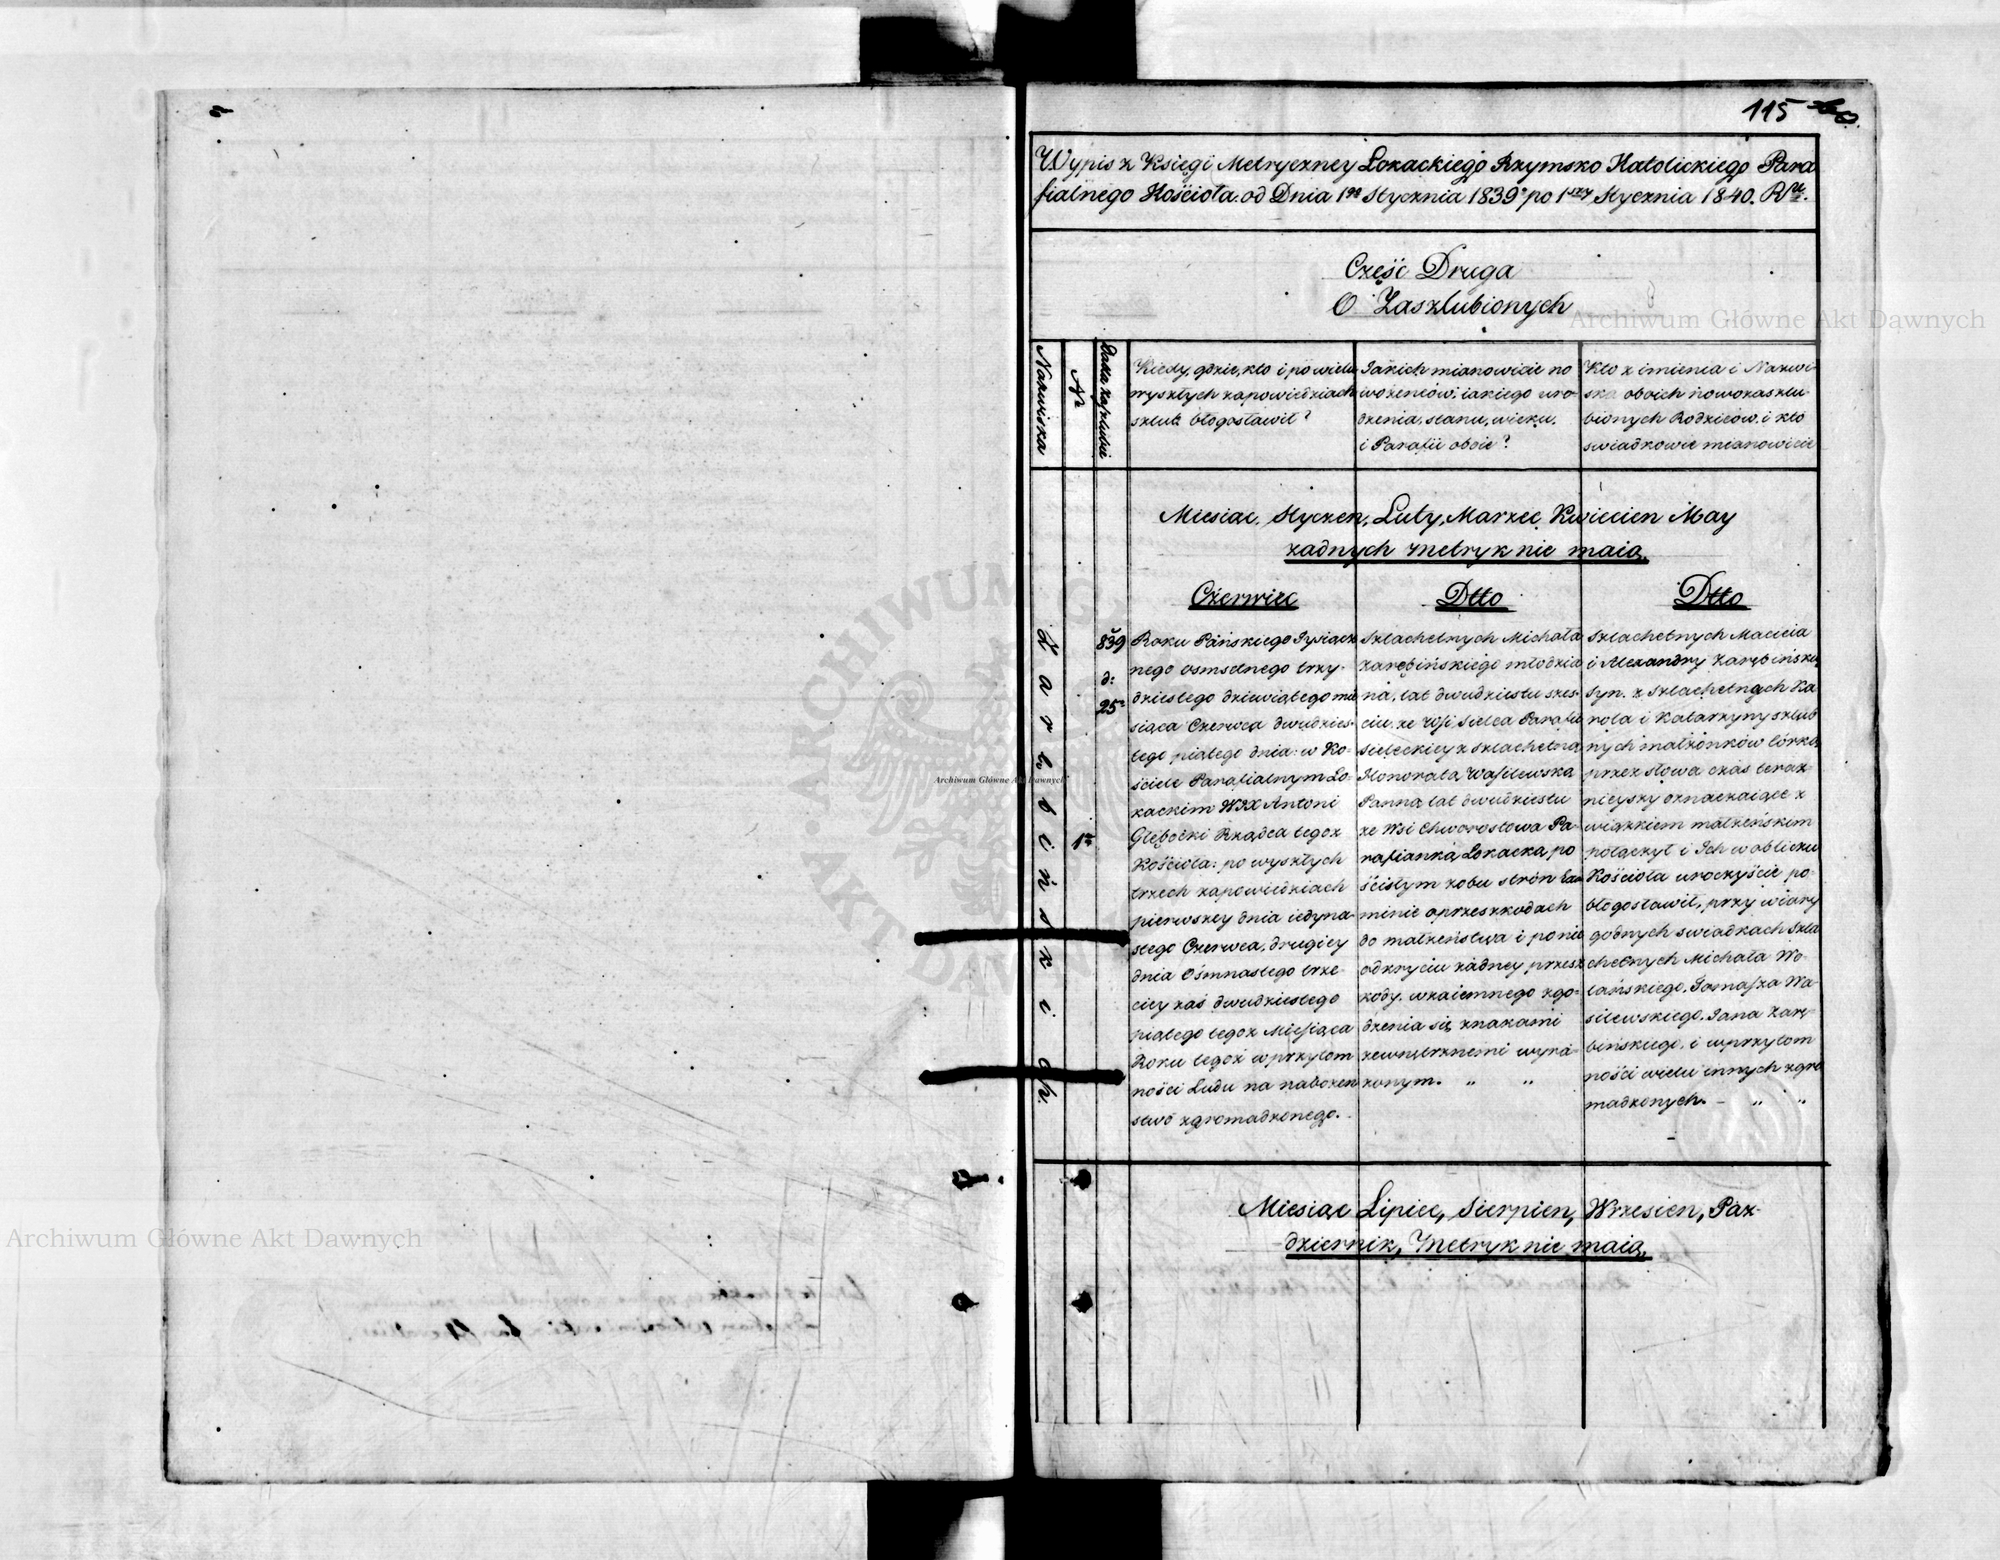 115
Wypis z Księgi Metryczney Łokackiego Rzymsko Katolickiego Para
fialnego Kościoła od Dnia 1go Stycznia 1839 po 1szy Stycznia 1840. Ru.
Część Druga
O Zaszlubionych
Nazwiska
Nr
Data zaszlubin
Kiedy, gdzie, kto i po wielu
wyszłych zapowiedziach
szlub błogosławił?
Jakich mianowicie no
wożeńców, iakiego uro-
dzenia, stanu, wieku,
i Parafii oboie?
Kto z imienia i Nazwi-
ska oboich nowozaszlu
bionych Rodziców, i kto
swiadkowie mianowicie
Miesiac, Styczen, Luty, Marzec, Kwiecien May
zadnych metryk nie maią,
Czerwiec
Dtto
Dtto
Zarembińskich.
1
839
d:
25
Roku Pańskiego Tysiącz
nego osmsetnego trzy-
dziestego dziewiątego mie
siąca Czerwca dwudzies-
tego piątego dnia: w Ko-
ściele Parafialnym Ło-
kackim WJX Antoni
Głębocki Rządca tegoz
Kościoła: po wyszłych
trzech zapowiedziach
pierwszey dnia iedyna-
stego Czerwca, drugiey
dnia Ośmnastego trze-
ciey zaś dwudziestego
piątego tegoz Miesiąca
Roku tegoż w przytom
ności Ludu na nabożen
stwo zgromadzonego.
Szlachetnych Michała
Zarębińskiego młodzia
na, lat dwudziestu szes-
ciu, ze Wsi Sielca Parafii
Sieleckiey z Szlachetną
Honoratą Wasilewską
Panną lat dwudziestu
ze Wsi Chworostowa Pa-
rafianką Łokacką, po
ścisłym z obu strón Exa
minie o przeszkodach
do małżeństwa i po nie
odkryciu żadney przesz
kody, wzaiemnego zgo-
dzenia się znakami
zewnętrznemi wyra-
zonym. " "
Szlachetnych Macieia
i Alexandry Zarębińskich
syn, z Szlachetnych Ka
rola i Katarzyny szlub
nych małżonków córką,
przez słowa czas teraz-
nieyszy oznaczaiące z
wiązkiem małżeńskim
połączył i Ich w obliczu
Kościoła uroczyście po-
błogosławił, przy wiary
godnych swiadkach Szla
chetnych Michała Wo-
lańskiego, Tomasza Wa-
silewskiego, Jana Zarę-
bińskiego, i w przytom
ności wielu innych zgro
madzonych. - " "
Miesiąc Lipiec, Sierpien, Wrzesien, Paz-
dziernik, Metryk nie maią,
Archiwum Główne Akt Dawnych
Archiwum Główne Akt Dawnych
Archiwum Główne Akt Dawnych
ARCHIWUM GŁÓWNE AKT DAWNYCH